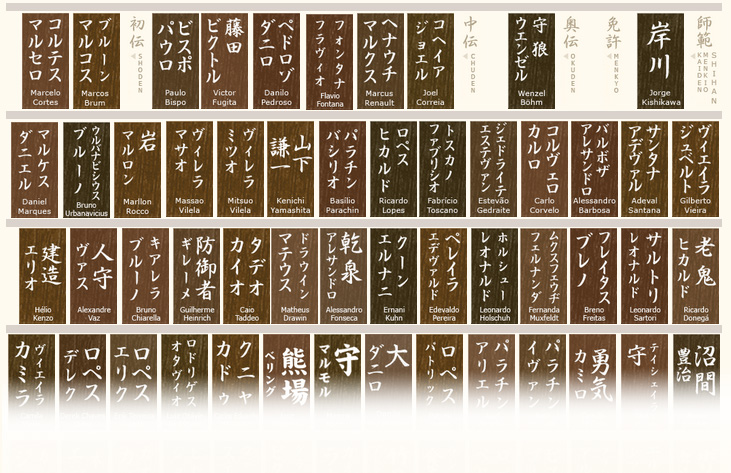 コルテス
マルセロ
Marcelo
Cortes
ブルーン
マルコス
Marcos
Brum
初伝
SHODEN
ビスポ
パウロ
Paulo
Bispo
藤田
ビクトル
Victor
Fugita
ペドロゾ
ダニロ
Danilo
Pedroso
フォンタナ
フラヴィオ
Flavio
Fontana
ヘナウチ
マルクス
Marcus
Renault
コヘイア
ジョエル
Joel
Correia
中伝
CHUDEN
守狼
ウエンゼル
Wenzel
Böhm
奥伝
OKUDEN
免許
MENKYO
岸川
Jorge
Kishikawa
師範
SHIHAN
MENKIO
KAIDEN
マルケス
ダニエル
Daniel
Marques
ウルバナビシウス
ブルーノ
Bruno
Urbanavicius
岩
マルロン
Marllon
Rocco
ヴィレラ
マサオ
Massao
Vilela
ヴィレラ
ミツオ
Mitsuo
Vilela
山下
謙一
Kenichi
Yamashita
パラチン
バシリオ
Basilio
Parachin
ロペス
ヒカルド
Ricardo
Lopes
トスカノ
ファブリシオ
Fabrício
Toscano
ジェドライテ
エステヴァン
Estevão
Gedraite
コルヴェロ
カルロ
Carlo
Corvelo
バルボザ
アレサンドロ
Alessandro
Barbosa
サンタナ
アデヴァル
Adeval
Santana
ヴィエイラ
ジュベルト
Gilberto
Vieira
建造
エリオ
Hélio
Kenzo
人守
ヴァス
Alexandre
Vaz
キアレラ
ブルーノ
Bruno
Chiarella
防御者
ギレーメ
Guilherme
Heinrich
タデオ
カイオ
Caio
Taddeo
ドラウイン
マテウス
Matheus
Drawin
乾泉
アレサンドロ
Alessandro
Fonseca
クーン
エルナニ
Ernani
Kuhn
ペレイラ
エデヴァルド
Edevaldo
Pereira
ホルシュー
レオナルド
Leonardo
Holschuh
ムクスフェウヂ
フェルナンダ
Fernanda
Muxfeldt
フレイタス
ブレノ
Breno
Freitas
サルトリ
レオナルド
Leonardo
Sartori
老鬼
ヒカルド
Ricardo
Donegá
ヴィエイラ
カミラ
ロペス
デレク
ロペス
エリク
ロドリゲス
オタヴィオ
クニャ
カドゥ
熊場
ベリング
守
マルモル
大
ダニロ
ロペス
パトリック
パラチン
アリエル
パラチン
イヴァン
勇気
カミロ
守
沼間
豊治